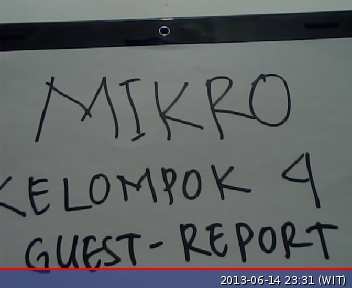 MIKRO
KELOMPOK 4
GUEST-REPORT
2013-06-14 23:31 (WIT)